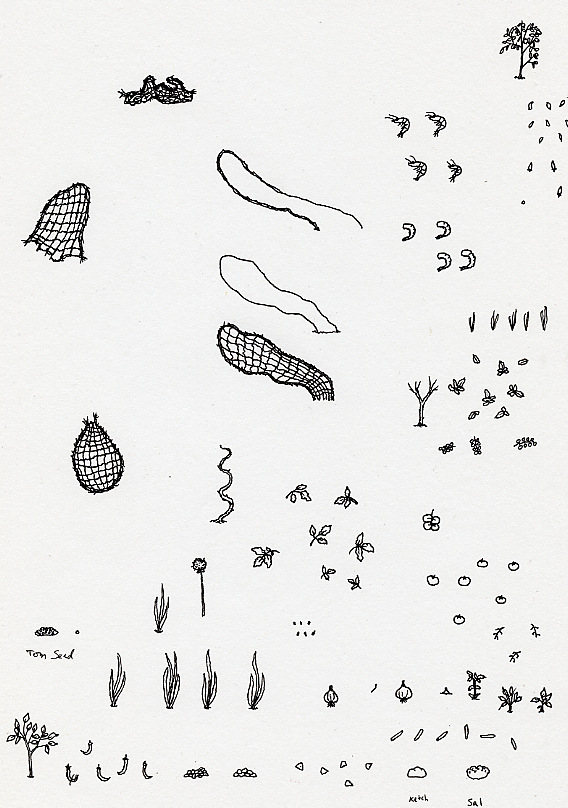 Tom Seed
Ketch
Sal